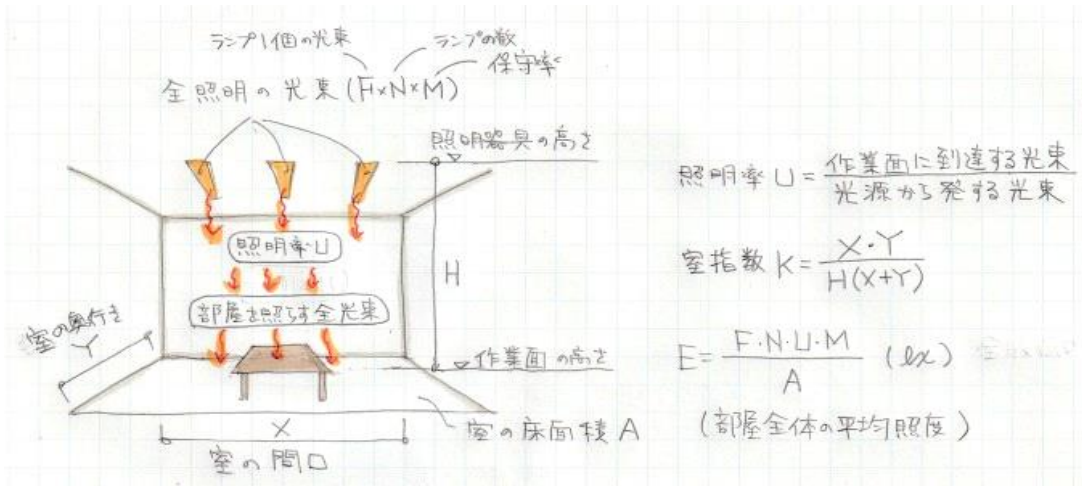 ランプ1個の光束
ランプの数
保守率
全照明の光束(F×N×M)
照明器具の高さ
照明率U
部屋を照らす全光束
H
室の奥行き
Y
作業面の高さ
X
室の間口
室の床面積A
照明率 U = 作業面に到達する光束
光源から発する光束
室指数 K = X・Y
H(X+Y)
E = F・N・U・M (lx)
A
(部屋全体の平均照度)